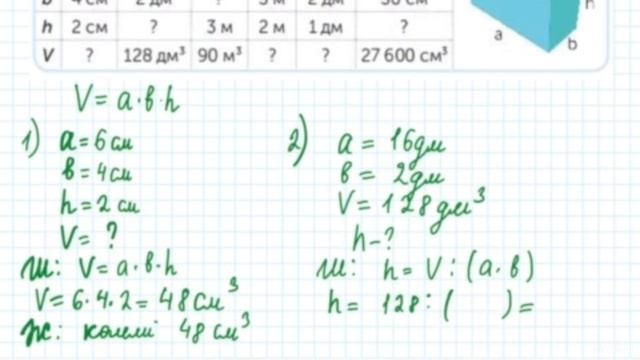 h 2 см ? 3 м 2 м 1 дм ?
V ? 128 дм³ 90 м³ ? ? 27 600 см³
h
a
b
V = a · b · h
1) a = 6 см
b = 4 см
h = 2 см
V = ?
Ш: V = a · b · h
V = 6 · 4 · 2 = 48 см³
Ж: көлемі 48 см³
2) a = 16 дм
b = 2 дм
V = 128 дм³
h - ?
Ш: h = V : (a · b)
h = 128 : ( ) =